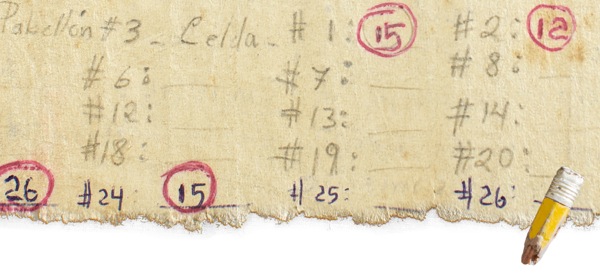 Pabellón #3 - Celda - #1: 15 #2: 12
#6: #7: #8:
#12: #13: #14:
#18: #19: #20:
26 #24: 15 #25: #26: